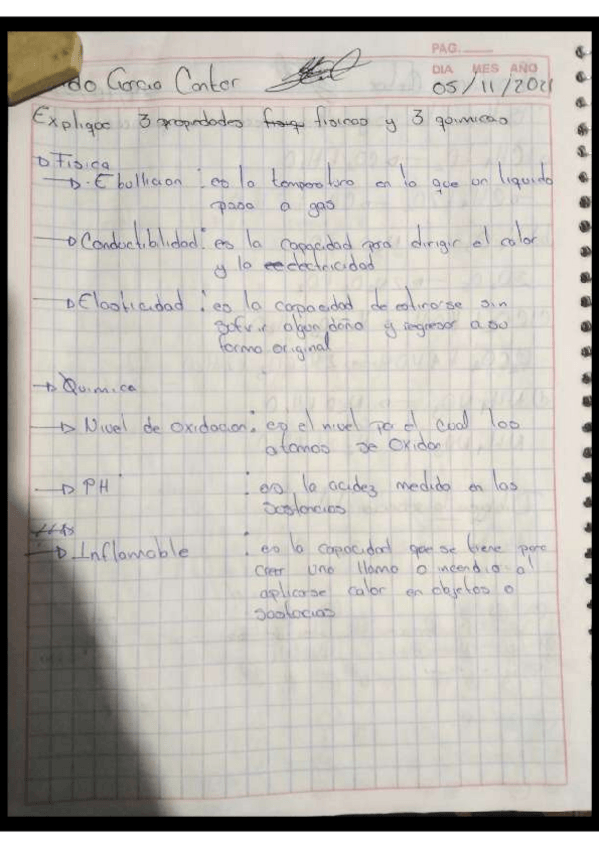 PAG.
do Garcia Cantor
DIA MES AÑO
05/11/2021
Explique 3 propiedades fisicas y 3 quimicas
Fisica
Ebullicion : es la temperatura en la que un liquido
pasa a gas
Conductibilidad : es la capacidad para dirigir el calor
y la electricidad
Elasticidad : es la capacidad de estirarse sin
sufrir algun daño y regresar a su
forma original
Quimica
Nivel de oxidacion : es el nivel por el cual los
atomos se oxidan
PH : es la acidez medida en las
sustancias
Inflamable : es la capacidad que se tiene para
crear una llama o incendio al
aplicarse calor en objetos o
sustacias